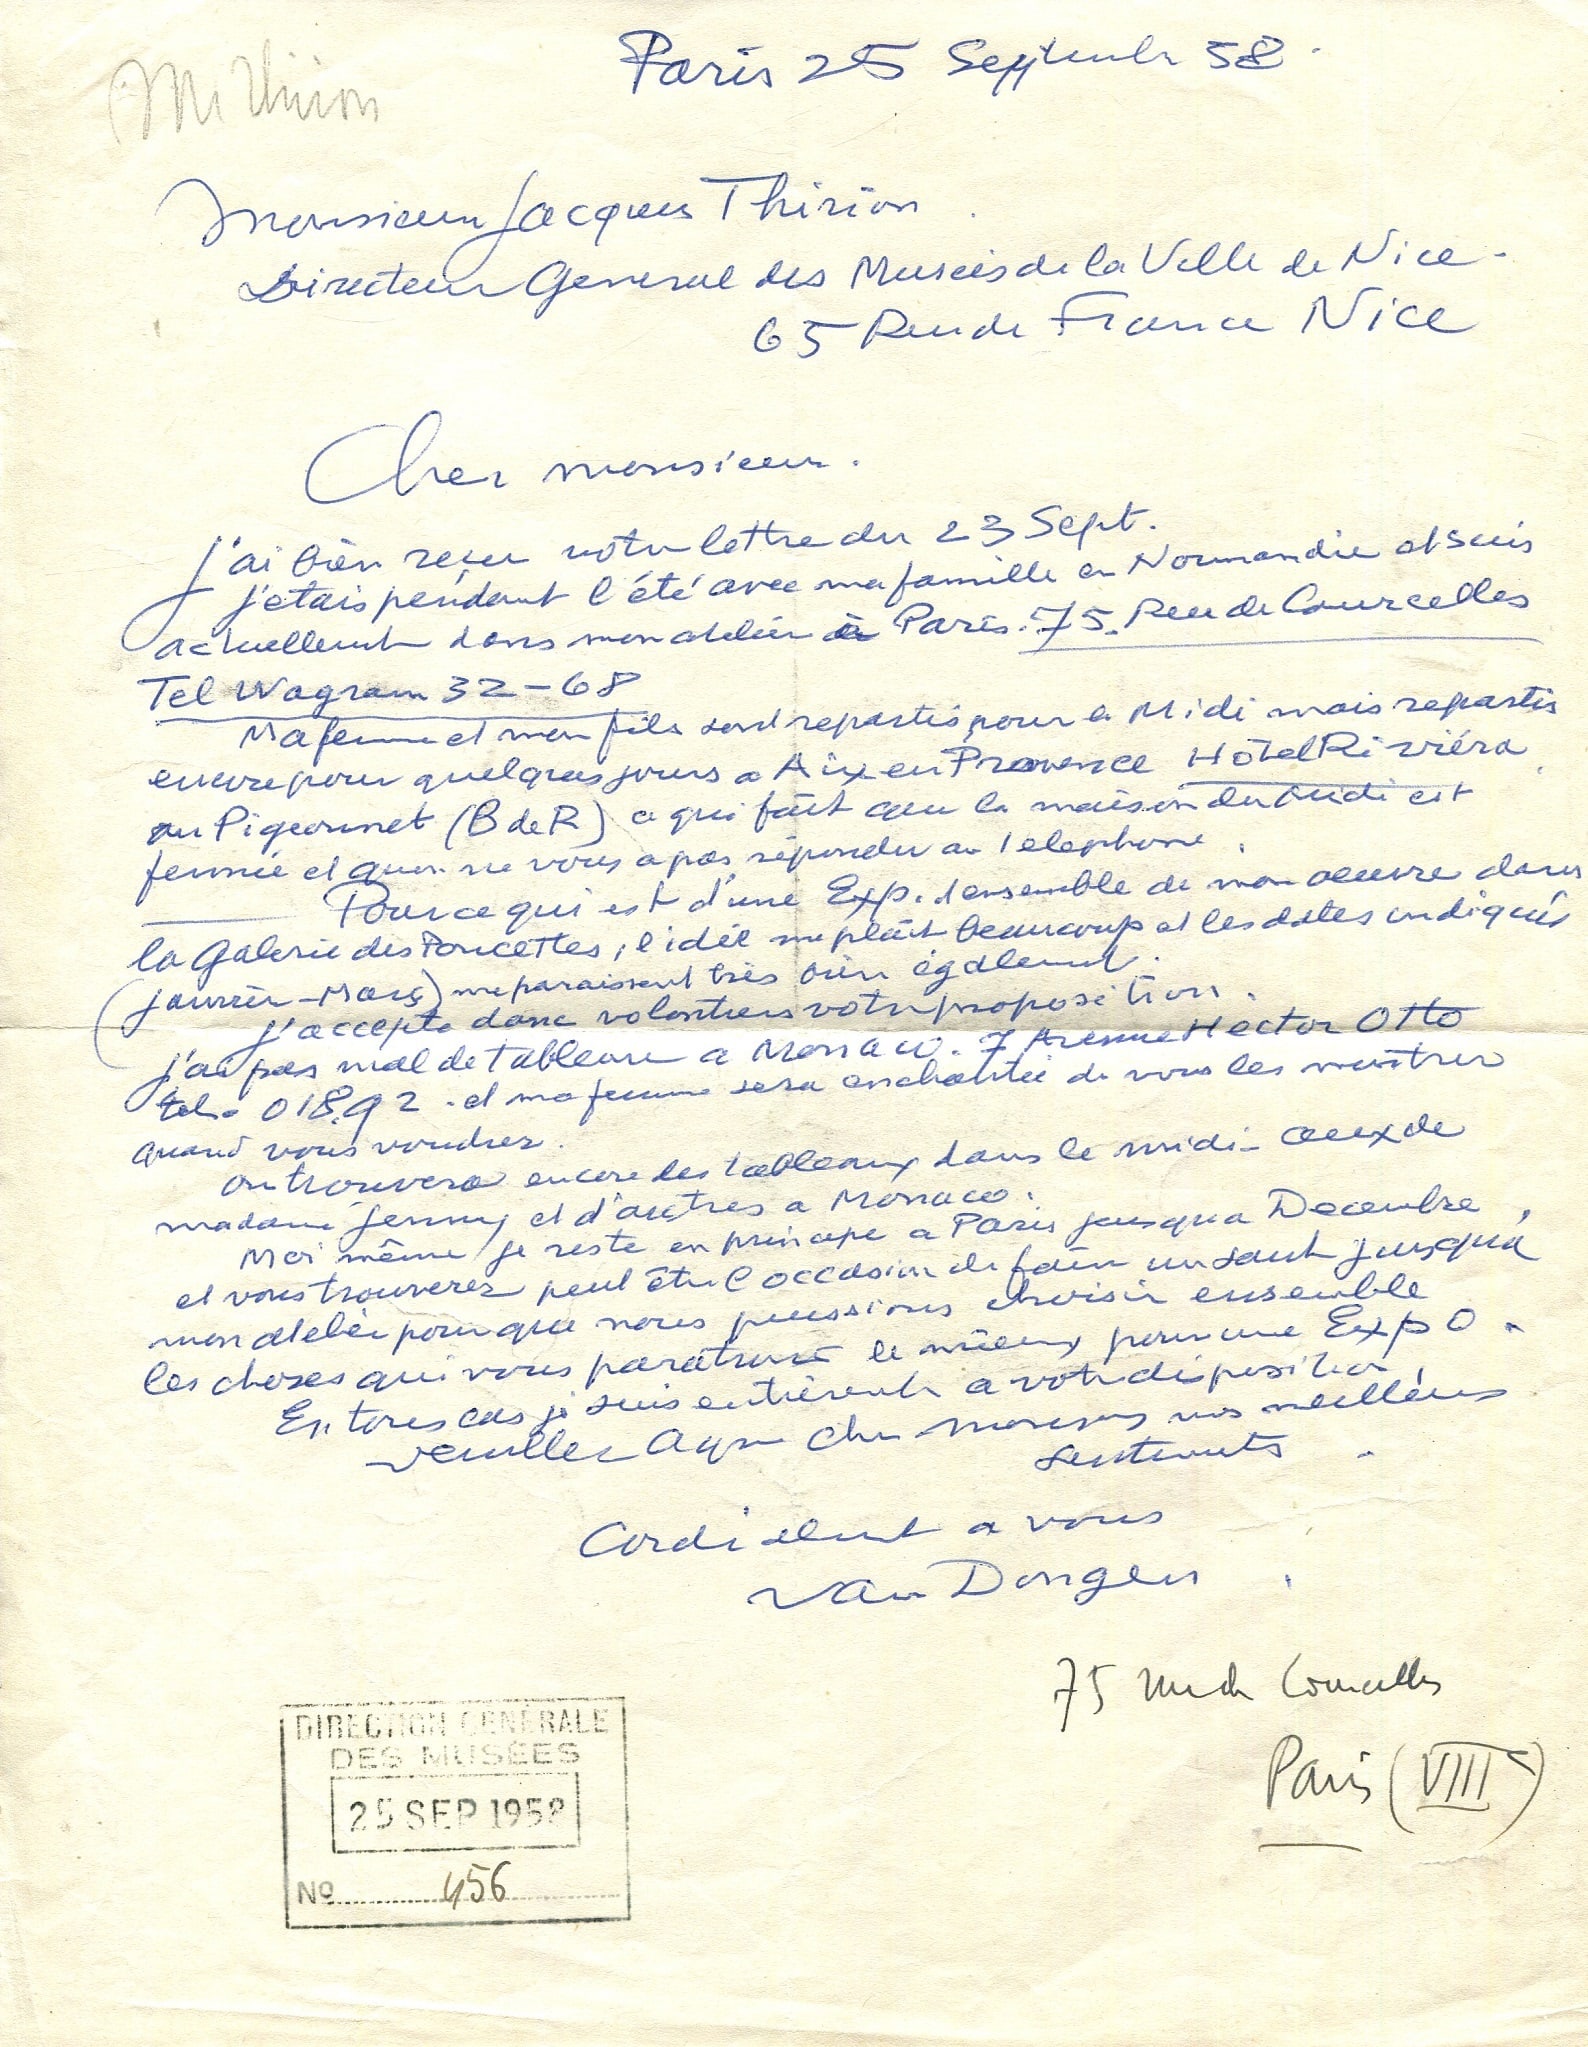 Mr Thirion
Paris 25 Septembre 58.
Monsieur Jacques Thirion.
Directeur General des Musées de la Ville de Nice.
65 Rue de France Nice
Cher monsieur.
j'ai bien reçu votre lettre du 23 Sept.
j'etais pendant l'été avec ma famille en Normandie et suis
actuellement dans mon atelier à Paris. 75. Rue de Courcelles
Tel Wagram 32-68
Ma femme et mon fils sont repartis pour le Midi mais repartis
encore pour quelques jours a Aix en Provence Hôtel Riviéra
au Pigeonnet (B de R) ce qui fait que la maison du midi est
fermée et qu'on ne vous a pas répondu au telephone.
Pour ce qui est d'une Exp. d'ensemble de mon oeuvre dans
la Galerie des Poncettes, l'idée me plaît beaucoup et les dates indiqués
(janvier-Mars) me paraissent très bien également.
j'accepte donc volontiers votre proposition.
j'ai pas mal de tableaux a Monaco. 7 Avenue Hector Otto
tel. 018.92. et ma femme sera enchantée de vous les montrer
quand vous voudrez.
On trouvera encore des tableaux dans le midi - ceux de
madame Jenny et d'autres a Monaco.
Moi même je reste en principe a Paris jusqua Decembre,
et vous trouverez peut être l'occasion de faire un saut jusqu'à
mon atelier pour que nous puissions choisir ensemble
les choses qui vous paratront le mieux pour une Expo.
En tous cas je suis entièrement a votre disposition,
veuillez agréer cher monsieur mes meilleurs
sentiments.
Cordialement a vous
Van Dongen.
75 rue de Courcelles
Paris (VIII)
DIRECTION GÉNÉRALE
DES MUSÉES
25 SEP 1958
No 456